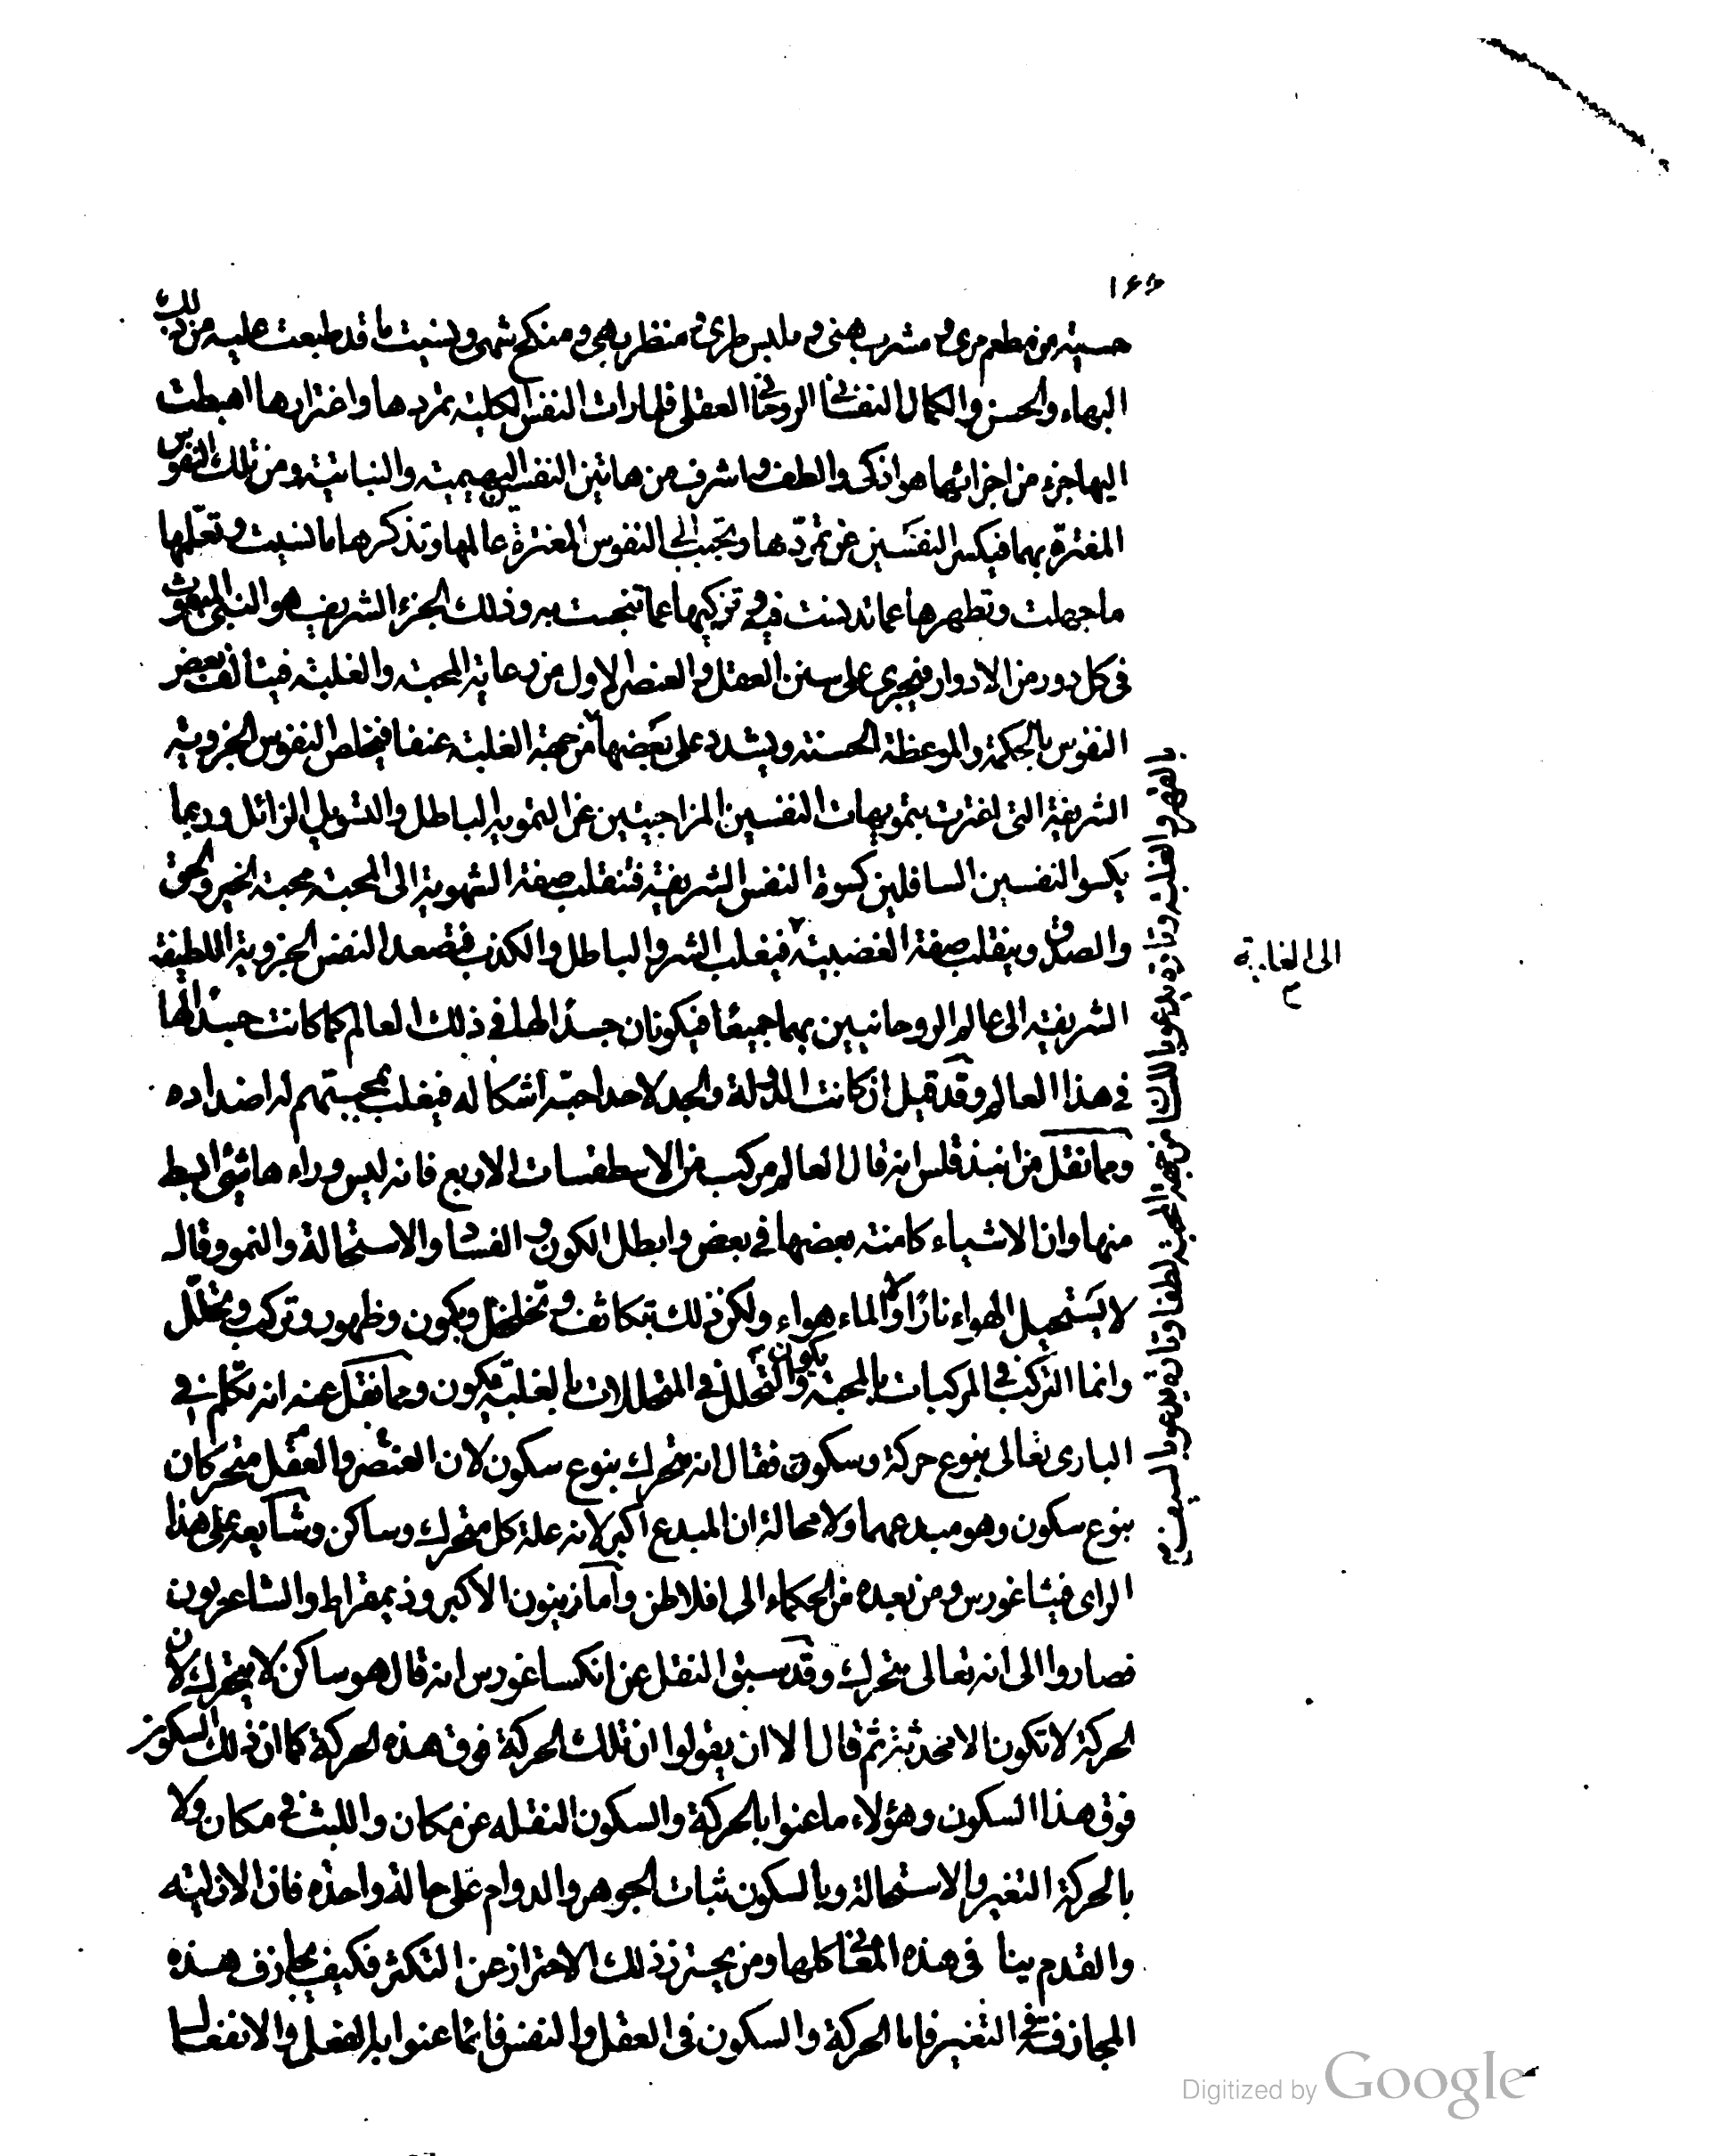 ١٦٦
حسية من مطعم مرى و مشرب هنى و ملبس طرى و منظر بهى و منكح شهى و نسيت ما قد طبعت عليه من ذلك
البهاء والحسن والكمال النفسانى الروحانى العقلى فلما رات النفس الكلية تمردها واغترارها اهبطت
اليها جزء من اجزائها هو اذكى والطف واشرف من هاتين النفسين البهيمية والنباتية ومن تلك النفوس
المغترة بهما فيكسر النفسين عن تمردها ويحبب الى النفوس المغترة عالمها وتذكرها ما نسيت وتعلمها
ما جهلت وتطهرها عما تدنست فيه وتزكيها عما تنجست به وذلك الجزء الشريف هو النبى المبعوث
فى كل دور من الادوار فيجرى على سنن العقل والعنصر الاول من رعاية المحبة والغلبة فيتالف بعض
النفوس بالحكمة والموعظة الحسنة ويشدد على بعضها من جهة الغلبة عنفا فيخلص النفوس الجزوية
الشريفة التى اغترت بتمويهات النفسين المزاجيتين عن التمويه الباطل والتسويل الزائل وربما
يكسوا النفسين السافلين كسوة النفس الشريفة فتنقلب صفة الشهوية الى المحبة محبة الخير والحق
والصدق وينقلب صفة الغضبية فيغلب الشر والباطل والكذب فتصعد النفس الجزوية اللطيفة
الشريفة الى عالم الروحانيين بهما جميعًا فيكونان جسدًا لها فى ذلك العالم كما كانت جسدًا لها
فى هذا العالم وقد قيل ان كانت الدولة والجد لاحد احبه اشكاله فيغلب بمحبتهم له اضداده
ومما نقل من انبذقلس انه قال العالم مركب من الاسطقسات الاربع فانه ليس وراءها شئ ابسط
منها وان الاشياء كامنة بعضها فى بعض وابطل الكون و الفساد والاستحالة والنمو وقال
لا يستحيل الهواء نارًا ولا الماء هواء ولكن ذلك بتكاثف و تخلخل وبكون وظهور وتركب وتحلل
وانما التركب فى المركبات بالمحبة يكون والتحلل فى المتحللات بالغلبة يكون ومما نقل عنه انه تكلم فى
البارى تعالى بنوع حركة وسكون فقال انه متحرك بنوع سكون لان العنصر والعقل متحركان
بنوع سكون وهو مبدعهما ولا محالة ان المبدع اكبر لانه علة كل متحرك وساكن وشايعه على هذا
الراى فيثاغورس ومن بعده من الحكماء الى افلاطن واما زينون الاكبر وذيمقراط والشاعريون
فصاروا الى انه تعالى متحرك وقد سبق النقل عن انكساغورس انه قال هو ساكن لا يتحرك لان
الحركة لا تكون الا محدثة ثم قال الا ان يقولوا ان تلك الحركة فوق هذه الحركة كما ان ذلك السكون
فوق هذا السكون وهؤلاء ما عنوا بالحركة والسكون النقله عن مكان واللبث فى مكان ولا
بالحركة التغير والاستحالة وبالسكون ثبات الجوهر والدوام على حالة واحدة فان الازلية
والقدم ينا فى هذه المعانى كلها ومن يحترز ذلك الاحتراز عن التكثر فكيف يجازف هذه
المجازفة فى التغير فاما الحركة والسكون فى العقل والنفس فانما عنوا به الفعل والانفعال
بالقهر والغلبة وتارة يدعوا باللسان من جهة المحبة لطفا وتارة يدعو بالسيف
الى الغلبة
Digitized by Google